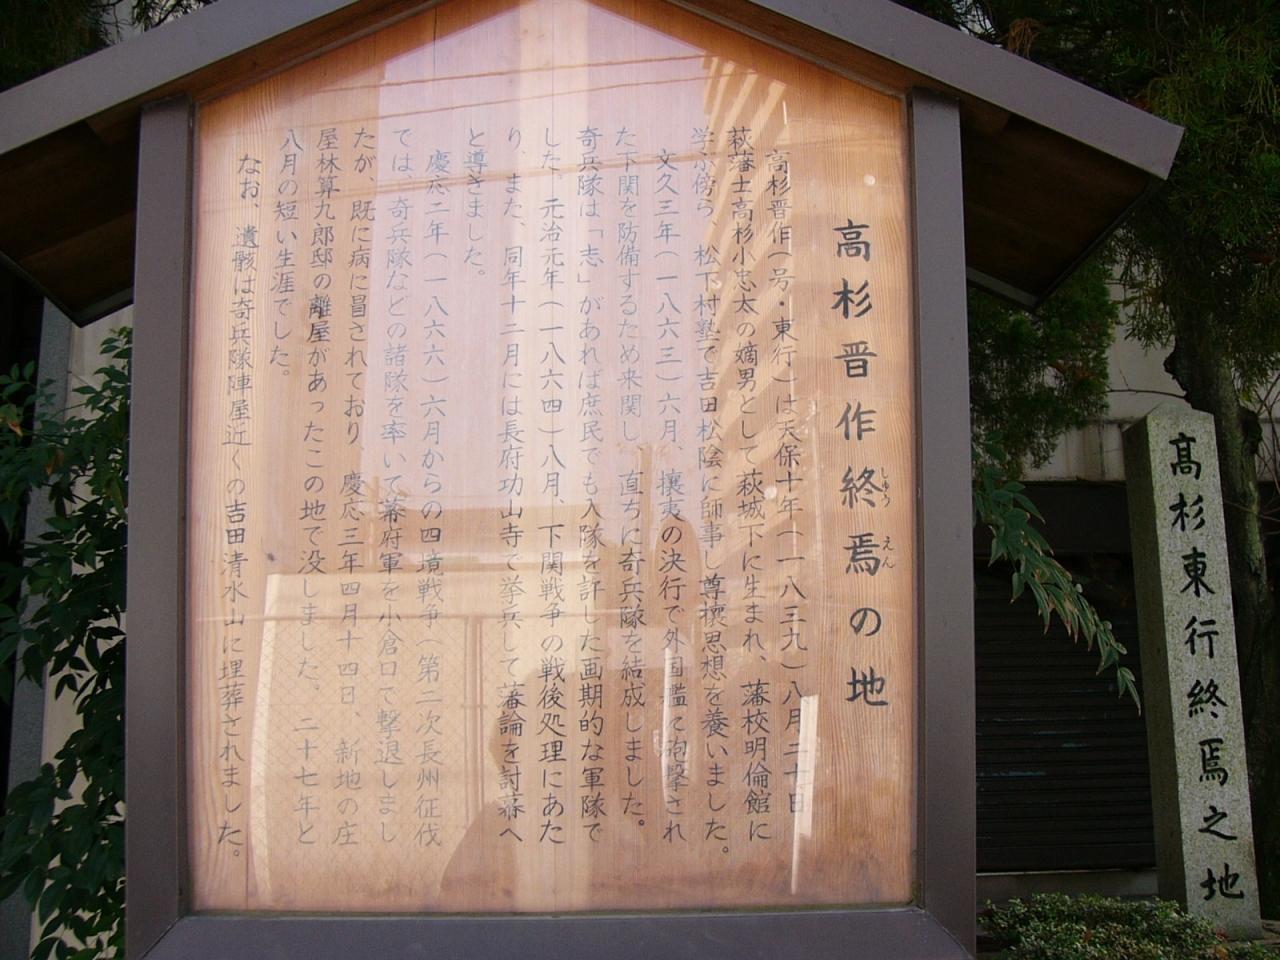 高杉晋作終焉の地
しゅう えん
高杉晋作(号・東行)は天保十年(一八三九)八月二十日
萩藩士高杉小忠太の嫡男として萩城下に生まれ、藩校明倫館に
学ぶ傍ら、松下村塾で吉田松陰に師事し尊攘思想を養いました。
文久三年(一八六三)六月、攘夷の決行で外国艦に砲撃され
た下関を防備するため来関し、直ちに奇兵隊を結成しました。
奇兵隊は「志」があれば庶民でも入隊を許した画期的な軍隊で
した。元治元年(一八六四)八月、下関戦争の戦後処理にあた
り、また、同年十二月には長府功山寺で挙兵して藩論を討幕へ
と導きました。
慶応二年(一八六六)六月からの四境戦争(第二次長州征伐
では、奇兵隊などの諸隊を率いて幕府軍を小倉口で撃退しまし
たが、既に病に冒されており、慶応三年四月十四日、新地の庄
屋林算九郎邸の離屋があったこの地で没しました。二十七年と
八月の短い生涯でした。
なお、遺骸は奇兵隊陣屋近くの吉田清水山に埋葬されました。
高杉東行終焉之地